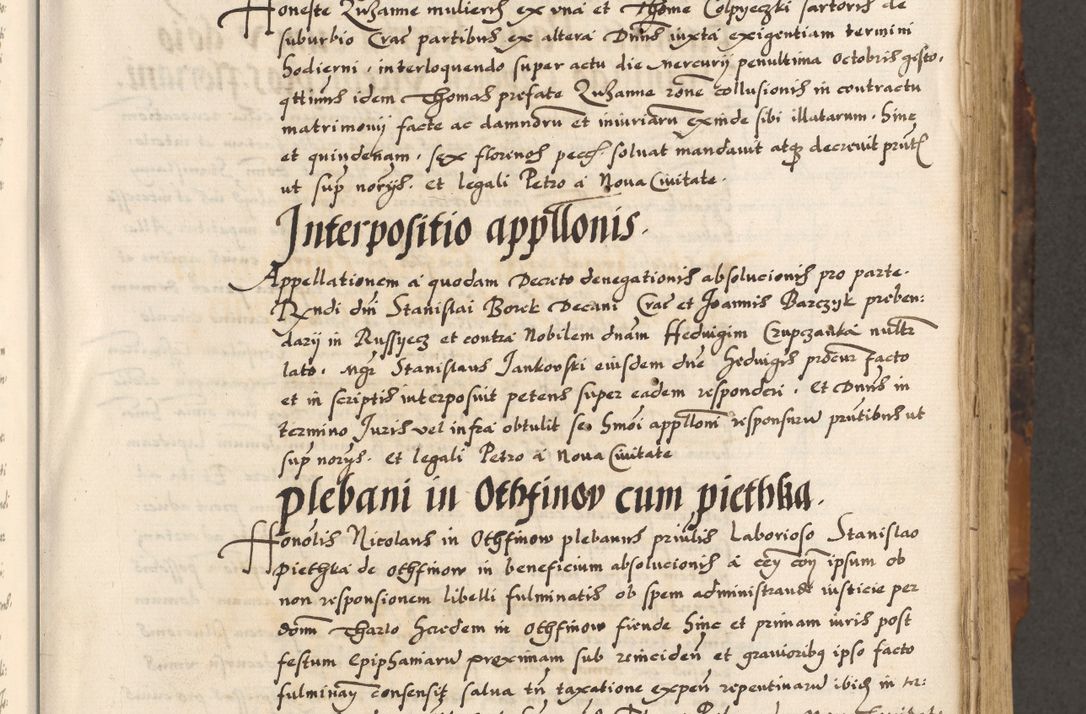 Honeste Zuzanne mulieris ex vna et Thome Colpyeczki sartoris de
suburbio Crac partibus ex altera Dnus iuxta exigentiam termini
hodierni, interloquendo super actu die Mercurij penultima Octobris gesto,
qttinus idem Thomas prefate Zuzanne rone collusionis in contractu
matrimonij facte ac damnoru et iniuriaru exinde sibi illatarum, hinc
et quindenam, sex florenos pecc. soluat mandauit atq decreuit pntes
ut sup norijs. Et legali Petro a Noua Ciuitate.
Interpositio appllonis.
Appellationem a quodam Decreto denegationis absolucionis pro parte.
Rndi dni Stanislai Borek Decani Crac et Joannis Barczyk preben:
darij in Russyecz et contra Nobilem dnam Hedvigim Crupczanka
lato. Mgr Stanislaus Jankovski eiusdem dne Hedvigis procur facto
et in scriptis interposuit petens super eadem responderi. Et Dnus in
termino Juris vel infra obtulit se hmoi applloni responsuru pntibus ut
sup norijs. Et legali Petro a Noua Ciuitate
Plebani in Othfinow cum piethka.
Honolis Nicolaus in Othfinow plebanus priulis Laborioso Stanislao
Piethka de Othfinow in beneficium absolucionis a ipsum ob
non responsionem libelli fulminatis ob spem administrande iusticie per
dom Tharlo heredem in Othfinow fiende hinc et primam iuris post
festum Epiphaniaru proximam sub reinciden et grauioribq ipso facto
fulminan consensit salua tn taxatione expen repentinaru ibid in ter: